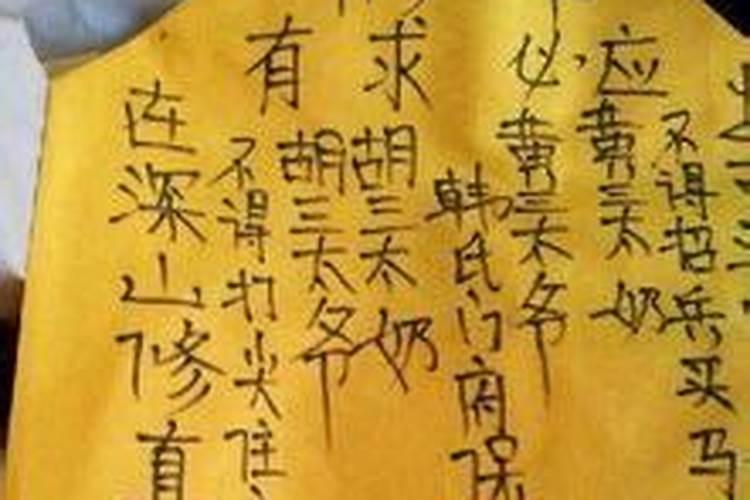 有求必应
在深山修
不得打尖住
胡三太爷
胡三太奶
韩氏门府
黄三太爷
黄三太奶
不得招兵买马